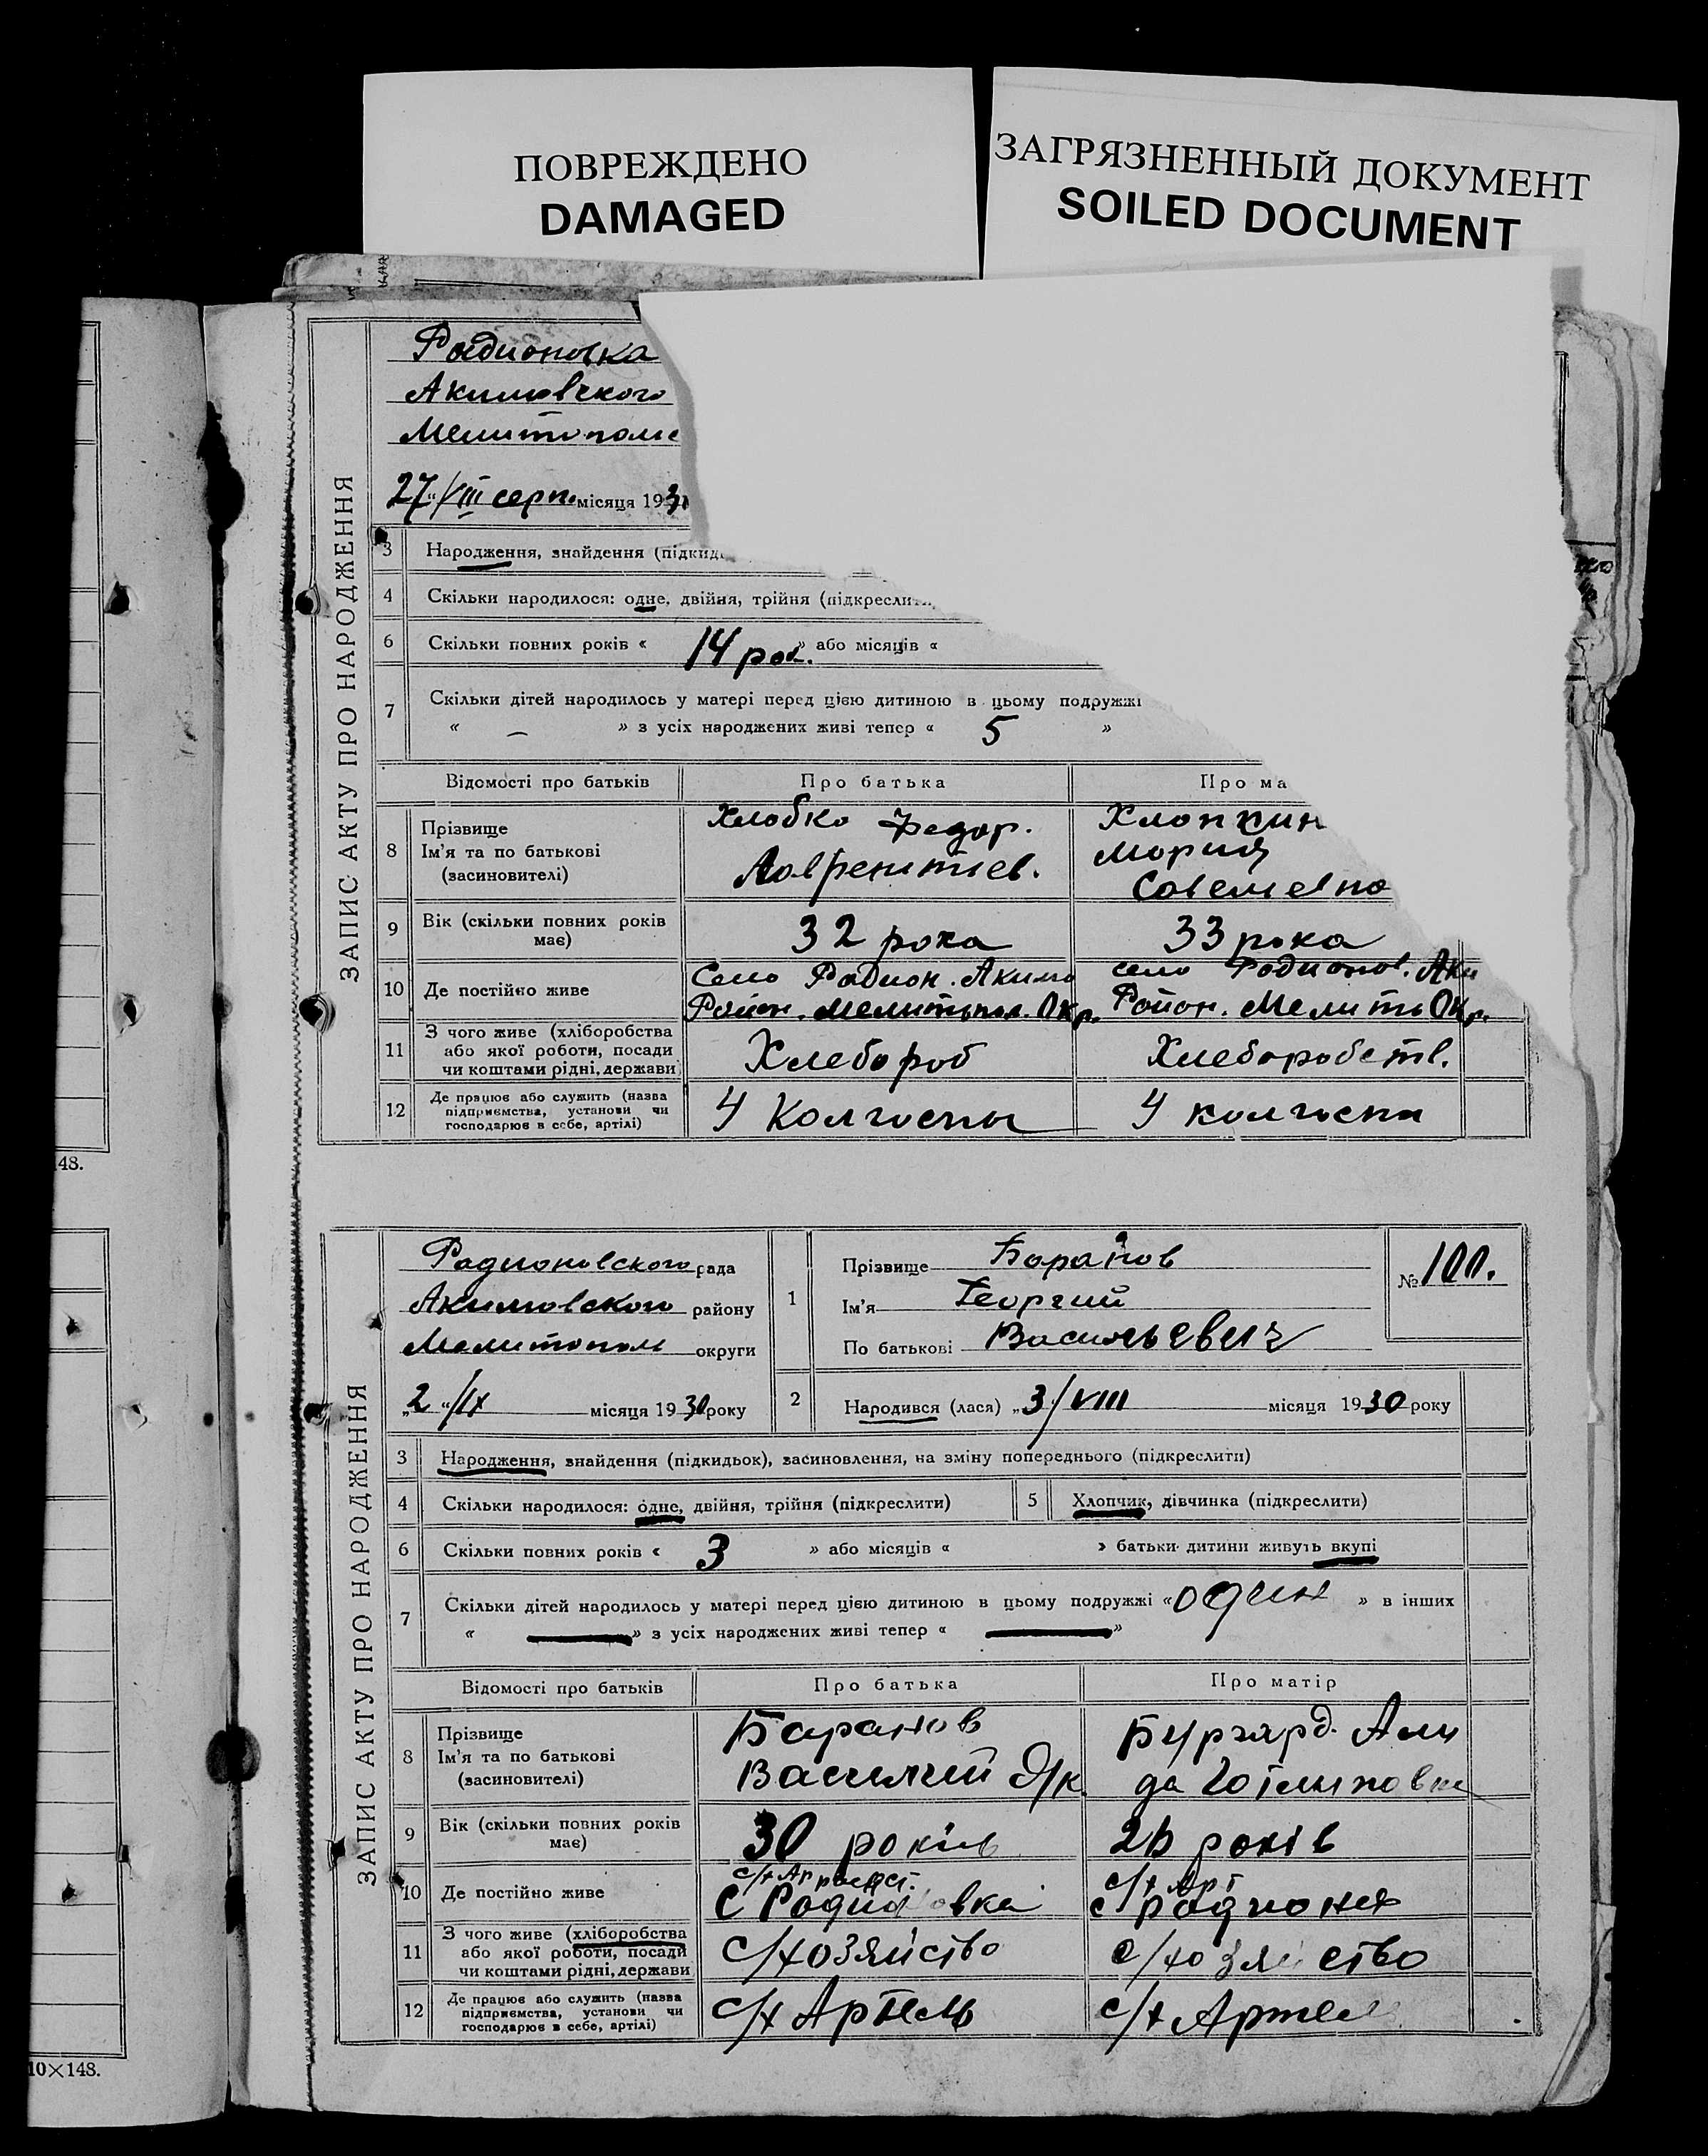 ПОВРЕЖДЕНО
DAMAGED
ЗАГРЯЗНЕННЫЙ ДОКУМЕНТ
SOILED DOCUMENT
ЗАПИС АКТУ ПРО НАРОДЖЕННЯ
Радионовка
Акимовского
Мелитополь
27/VIII серп. місяця 193
3 Народження, знайдення
4 Скільки народилося: одне, двійня, трійня
6 Скільки повних років « 14 рок. » або місяців «
7 Скільки дітей народилось у матері перед цією дитиною в цьому подружжі
« — » з усіх народжених живі тепер « 5 »
Відомості про батьків Про батька Про ма
8 Прізвище
Ім'я та по батькові
(засиновителі)
Хлобко Федор.
Лаврентиев.
Мария
Савелевна
9 Вік (скільки повних років має) 32 рока 33 рока
10 Де постійно живе
Село Радион. Акимо
Район. Мелитопол. Окр.
село Родионов. Аки
Район. Мелито Окр.
11 З чого живе (хліборобства
або якої роботи, посади
чи коштами рідні, держави
Хлебороб Хлеборобств.
12 Де працює або служить (назва
підприємства, установи чи
господарює в себе, артілі)
У Колгоспы У колгоспи
48.
ЗАПИС АКТУ ПРО НАРОДЖЕННЯ
Радионовского рада
Акимовского району
Мелитополь округи
„2"/IX місяця 1930 року
1 Прізвище Баранов
Ім'я Георгий
По батькові Васильевич
№ 100.
2 Народився (лася) „3/VIII місяця 1930 року
3 Народження, знайдення (підкидьок), засиновлення, на зміну попереднього (підкреслити)
4 Скільки народилося: одне, двійня, трійня (підкреслити) 5 Хлопчик, дівчинка (підкреслити)
6 Скільки повних років « 3 » або місяців « » батьки дитини живуть вкупі
7 Скільки дітей народилось у матері перед цією дитиною в цьому подружжі « один » в інших
« — » з усіх народжених живі тепер « — »
Відомості про батьків Про батька Про матір
8 Прізвище
Ім'я та по батькові
(засиновителі)
Баранов
Василий Д/к.
Бургард. Али
да Готлиповна
9 Вік (скільки повних років має) 30 років років
10 Де постійно живе
с Радионовка
с/х Арт
с Радионов
11 З чого живе (хліборобства
або якої роботи, посади
чи коштами рідні, держави
с/хозяйство с/хозяйство
12 Де працює або служить (назва
підприємства, установи чи
господарює в себе, артілі)
с/х Артель с/х Артель
10×148.